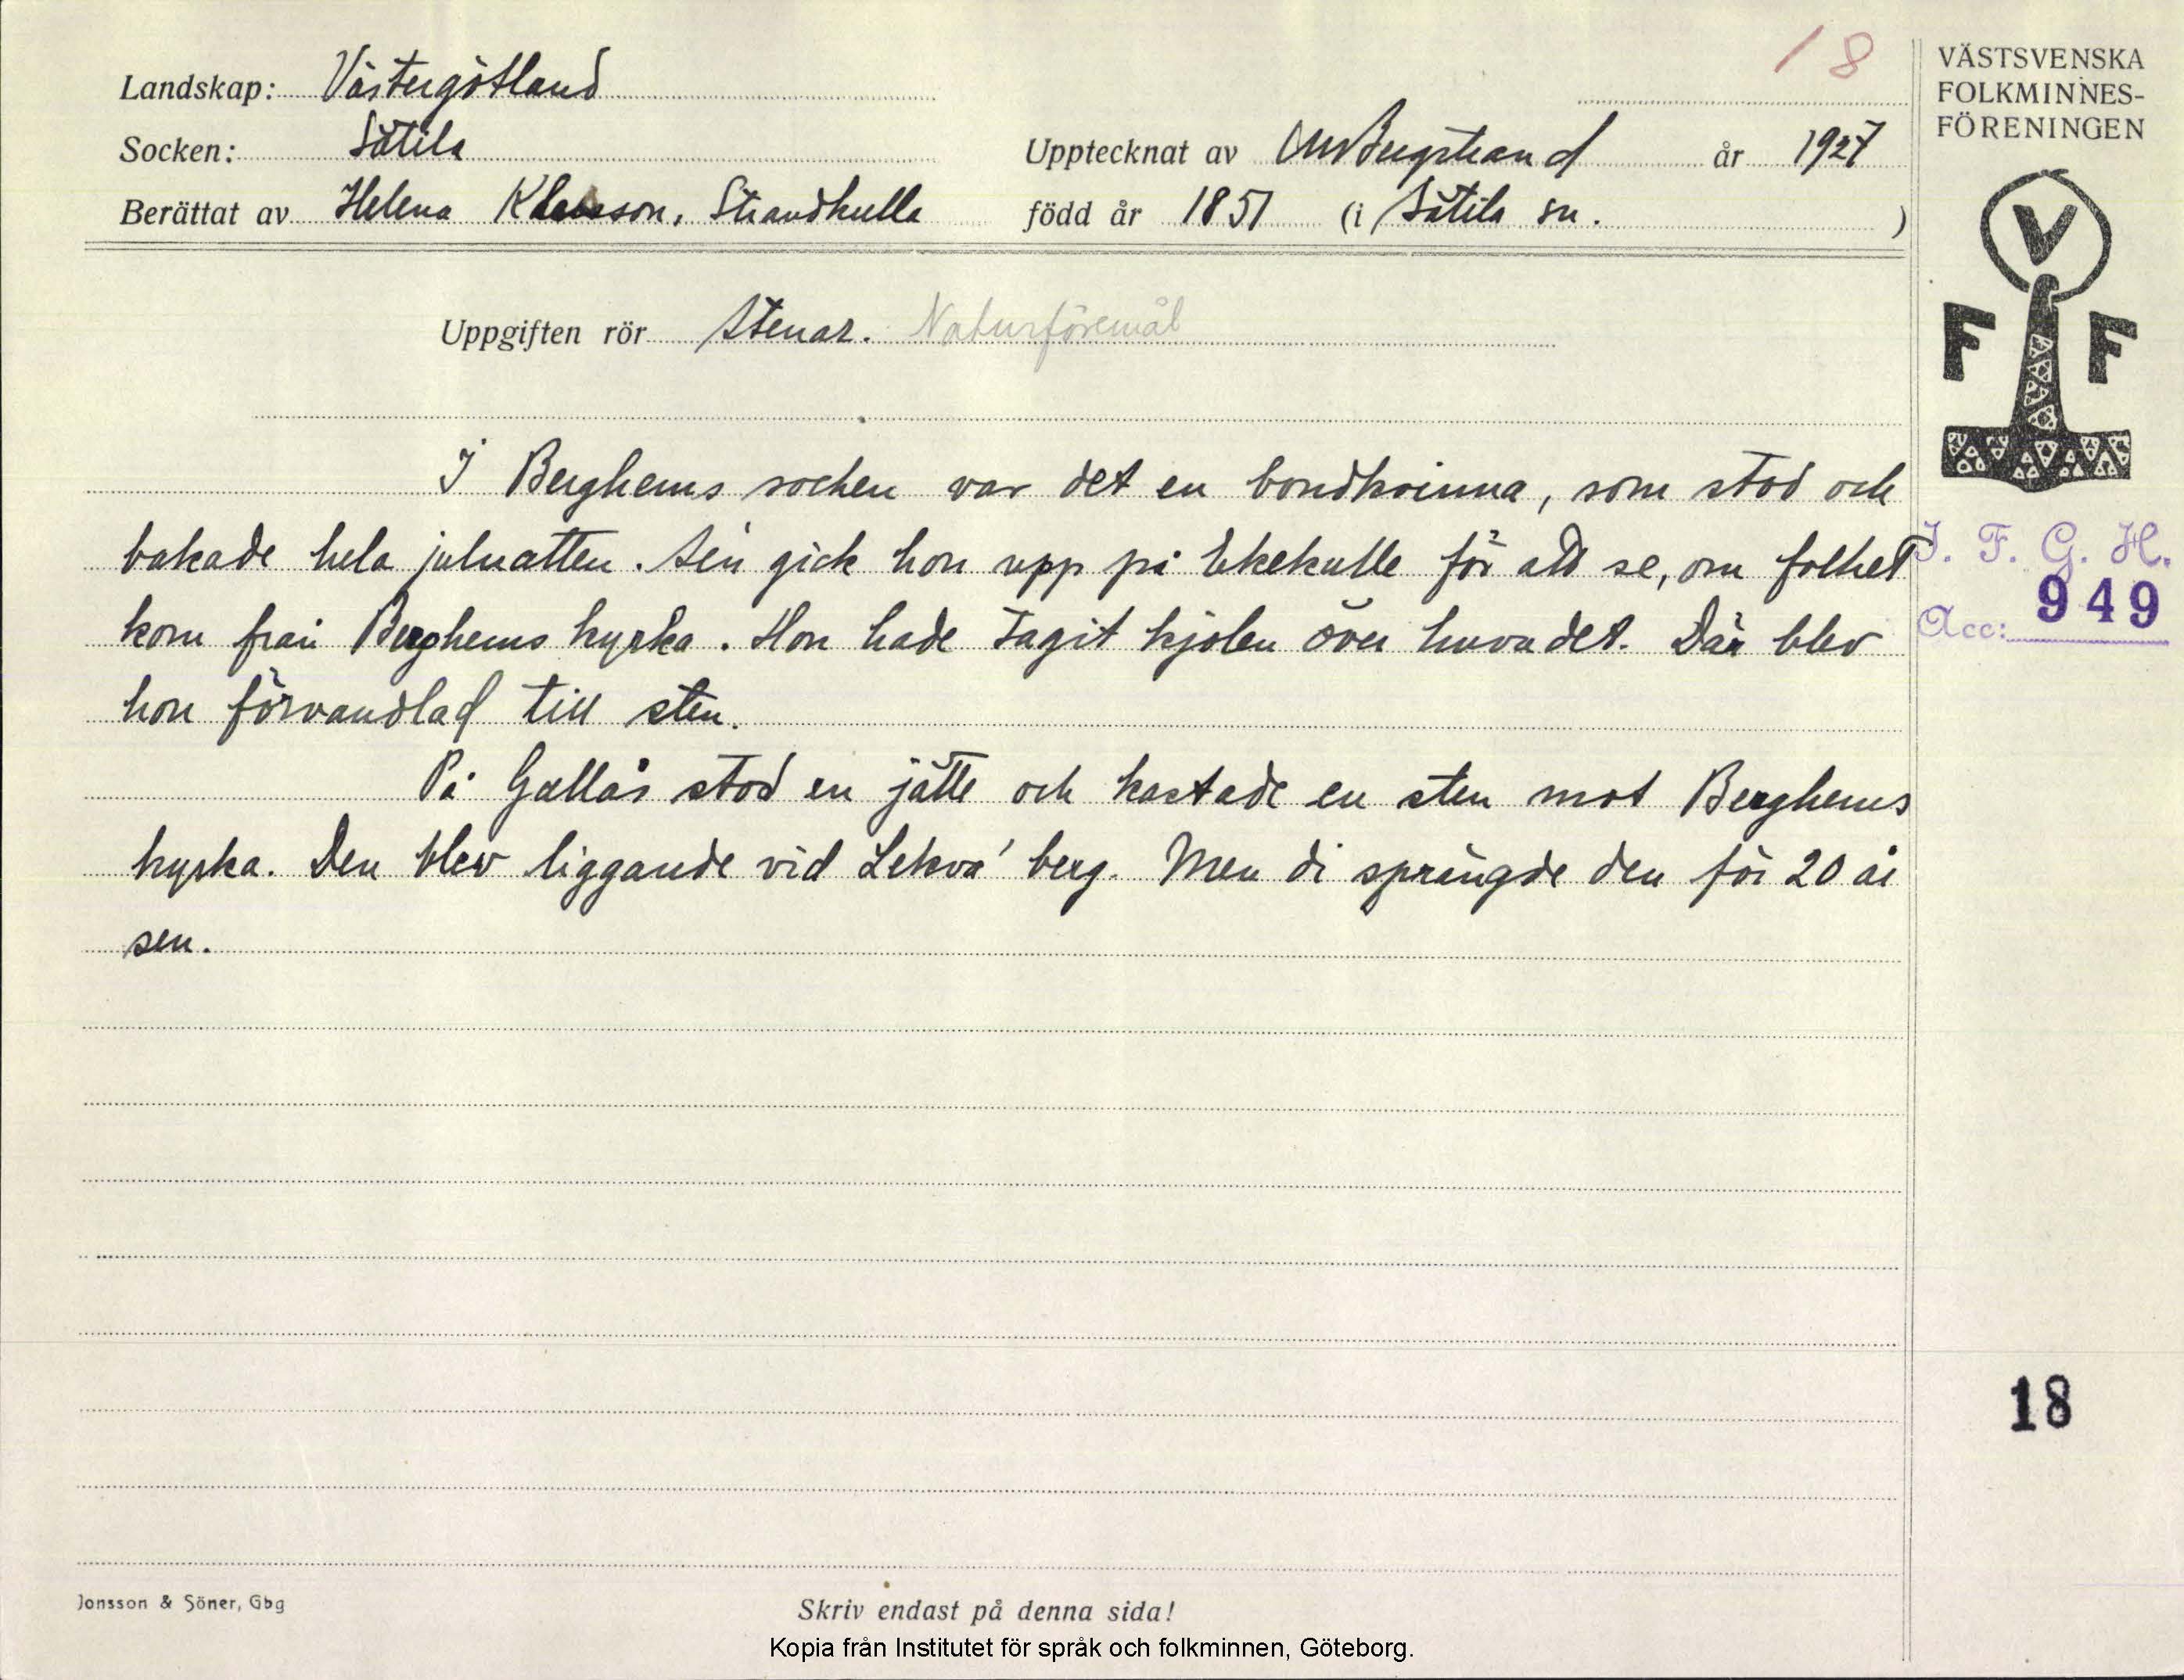 18
Landskap: Västergötland
Socken: Sätila
Upptecknat av CM Bergstrand år 1927
Berättat av Helena Klasson, Strandkulla född år 1851 (i Sätila sn. )
VÄSTSVENSKA
FOLKMINNES-
FÖRENINGEN
V
F F
Uppgiften rör Stenar. Naturföremål
I Berghems socken var det en bondkvinna, som stod och
bakade hela julnatten. Sen gick hon upp på Ekekulle för att se, om folket
kom från Berghems kyrka. Hon hade tagit kjolen över huvudet. Där blev
hon förvandlad till sten.
På Gällås stod en jätte och kastade en sten mot Berghems
kyrka. Den blev liggande vid Lekva' berg. Men di sprängde den för 20 år
sen.
I. F. G. H.
Acc: 949
18
Jonsson & Söner, Gbg
Skriv endast på denna sida!
Kopia från Institutet för språk och folkminnen, Göteborg.